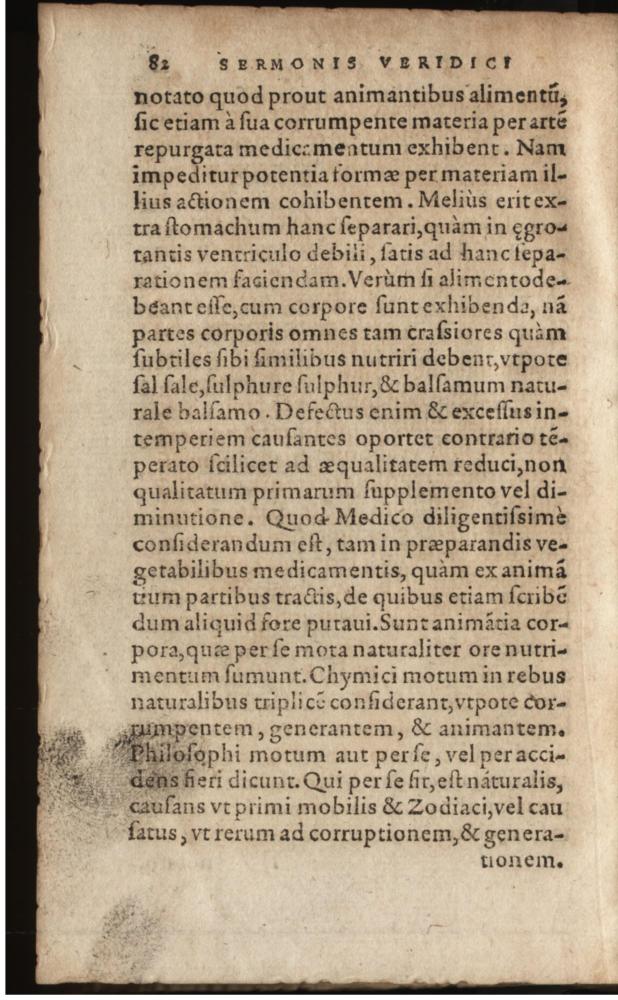 82 SERMONIS VERIDICI
notato quod prout animantibus alimentū,
ſic etiam à ſua corrumpente materia per artē
repurgata medicamentum exhibent. Nam
impeditur potentia formæ per materiam il-
lius actionem cohibentem. Meliùs erit ex-
tra ſtomachum hanc ſeparari, quàm in ęgro-
tantis ventriculo debili, ſatis ad hanc ſepa-
rationem faciendam. Verùm ſi alimento de-
beant eſſe, cum corpore ſunt exhibenda, nā
partes corporis omnes tam craſsiores quàm
ſubtiles ſibi ſimilibus nutriri debent, vtpote
ſal ſale, ſulphure ſulphur, & balſamum natu-
rale balſamo. Defectus enim & exceſſus in-
temperiem cauſantes oportet contrario tē-
perato ſcilicet ad æqualitatem reduci, non
qualitatum primarum ſupplemento vel di-
minutione. Quod Medico diligentiſsimè
conſiderandum eſt, tam in præparandis ve-
getabilibus medicamentis, quàm ex animā
tium partibus tractis, de quibus etiam ſcribē
dum aliquid fore putaui. Sunt animātia cor-
pora, quæ per ſe mota naturaliter ore nutri-
mentum ſumunt. Chymici motum in rebus
naturalibus triplicē conſiderant, vtpote cor-
rumpentem, generantem, & animantem.
Philoſophi motum aut per ſe, vel per acci-
dens fieri dicunt. Qui per ſe fit, eſt náturalis,
cauſans vt primi mobilis & Zodiaci, vel cau
ſatus, vt rerum ad corruptionem, & genera-
tionem.